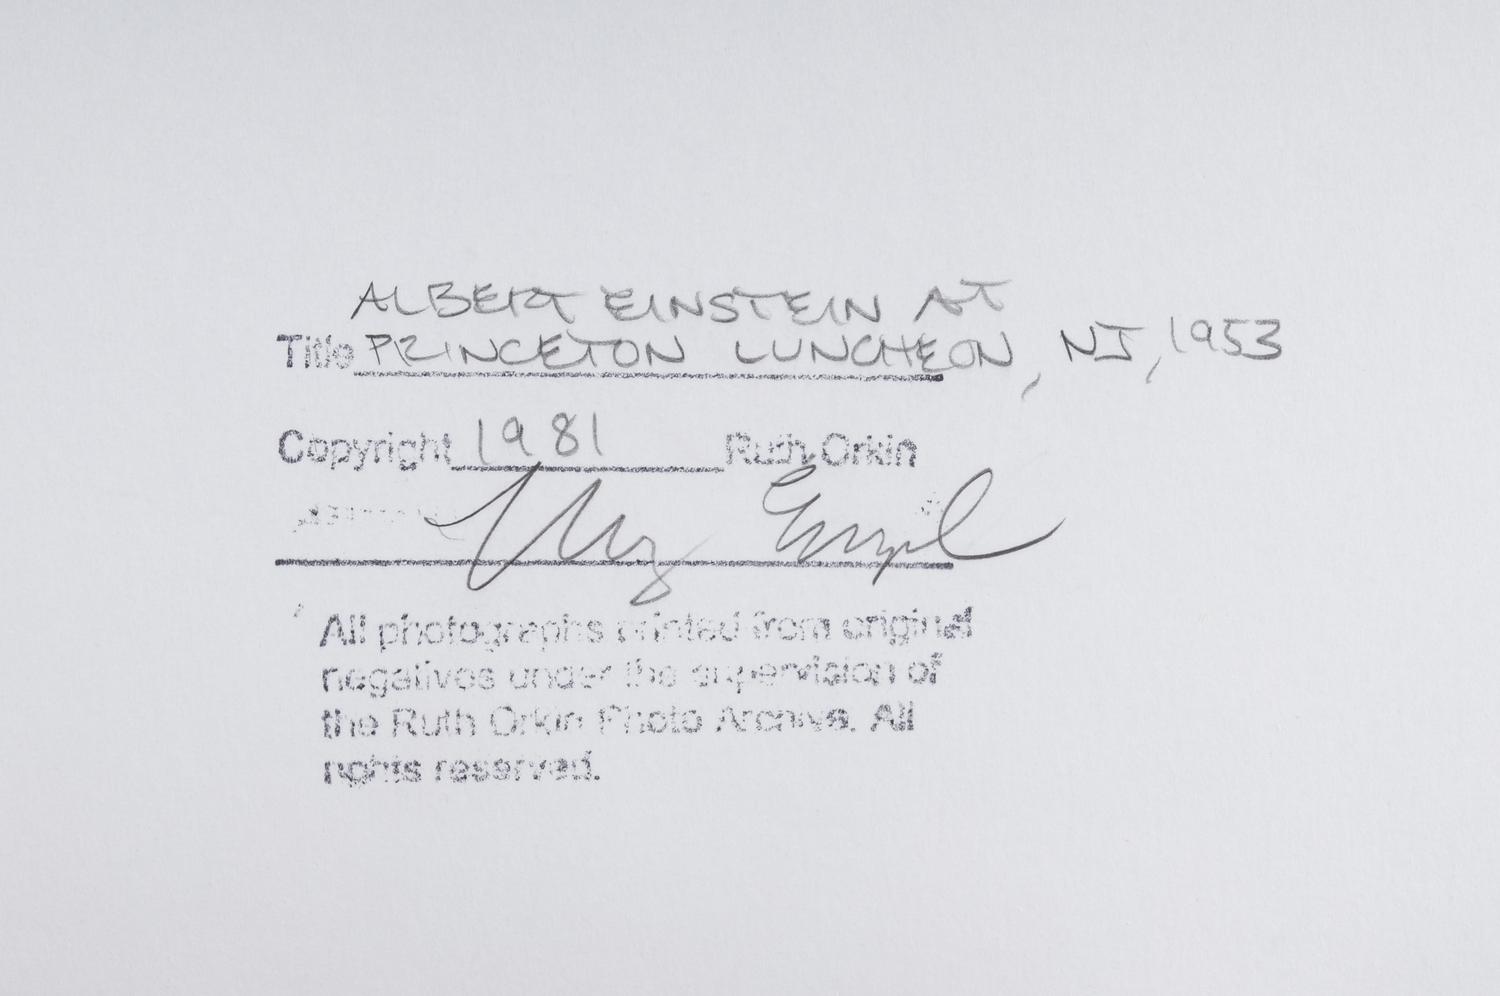 ALBERT EINSTEIN AT
Title PRINCETON LUNCHEON, NJ, 1953
Copyright 1981 Ruth Orkin
Mary Engel
All photographs printed from original
negatives under the supervision of
the Ruth Orkin Photo Archive. All
rights reserved.